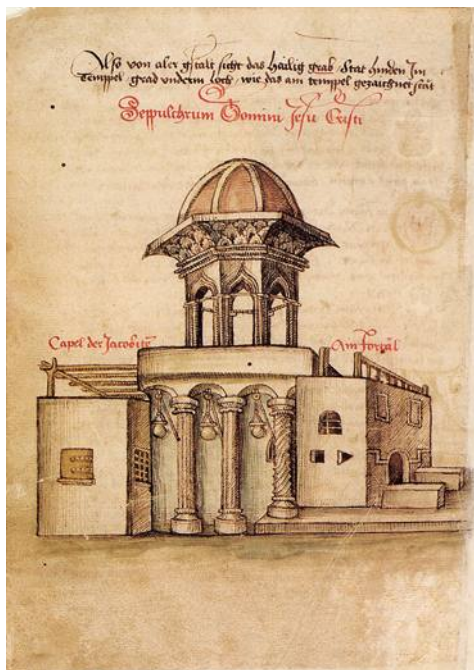 Also von aler gstalt sicht das heilig grab Stat hinden Im
Temppel grad underm loch wie das am temppel gezaichnet stát
Seppulchrum Domini Jesu Cristi
Capel der Jacobitē
Am Portāl